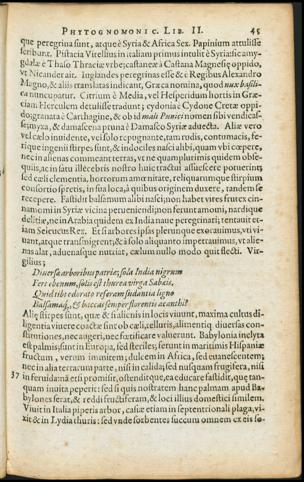 PHYTOGNOMONIC. LIB. II. 45
que peregrina sunt, atque è Syria & Africa Sex. Papinium attulisse
scribunt. Pistacia Vitellius in italiam primus intulit è Syria: sic amy-
gdalæ è Thaso Thraciæ vrbe; castaneæ à Castana Magnesię oppido,
vt Nicander ait. Iuglandes peregrinas esse & è Regibus Alexandro
Magno, & aliis translatas indicant, Græca nomina, quod nux basili-
ca nuncupatur. Citrium è Media, vel Hesperidum hortis in Græ-
ciam Herculem detulisse tradunt; cydonia è Cydone Cretæ oppi-
do, granata è Carthagine, & ob id malo Punici nomen sibi vendicas-
se; myxa, & damascena pruna è Damasco Syriæ aduecta. Aliæ vero
vel cælo inuidente, vel solo repugnante, tam rudis, contumacis, fe-
rique ingenii stirpes sunt, & indociles nasci alibi, quam vbi cœpere,
nec in alienas commeant terras, vt ne quamplurimis quidem obse-
quiis, ac in satu illecebris nostro humi tractui assuescere
sed cæli clementia, hortorum amœnitate, reliquarumque stirpium
consortio spretis, in sua loca, à quibus originem duxere, tandem se
recepere. Fastidit balsamum alibi nasci; non habet vires frutex cin-
namomi in Syriæ vicina perueniendi; non ferunt amomi, nardique
delitiæ, ne in Arabia quidem ex India naue peregrinari; tentauit et-
iam Seleucus Rex. Et si arbores ipsas plerunque exorauimus, vt vi-
uant, atque transmigrent; & à solo aliquanto impetrauimus, vt alie-
nas alat, aduenasque nutriat, cælum nullo modo quit flecti. Vir-
gilius;
Diuersæ arboribus patriæ; sola India nigrum
Fert ebenum, solis est thurea virga Sabæis,
Quid tibi odorato referam sudantia ligno
Balsamaq., & baccas semper florentis acanthi?
Alię stirpes sunt, quæ & si alienis in locis viuunt, maxima cultus di-
ligentia viuere coactæ sint ob cæli, telluris, alimentiq; diuersas con-
stitutiones, nec augeri, nec fortificare valuerunt. Babylonia inclyta
est palmis; sunt in Europa, sed steriles; ferunt in maritimis Hispaniæ
fructum, verum immitem; dulcem in Africa, sed euanescentem;
nec in alia terrarum parte, nisi in calida; sed nusquam frugifera, nisi
37 in feruida: nã etsi promisit, ostenditque, ea educare fastidit, quę tan-
quam inuita peperit: sed si quis nostratem hanc palmam apud Ba-
bylones serat, & reddi fructiferam, & loci illius domestici similem.
Viuit in Italia piperis arbor, casiæ etiam in septentrionali plaga, vi-
xit & in Lydia thuris: sed vnde sorbentes succum omnem ex eis so-